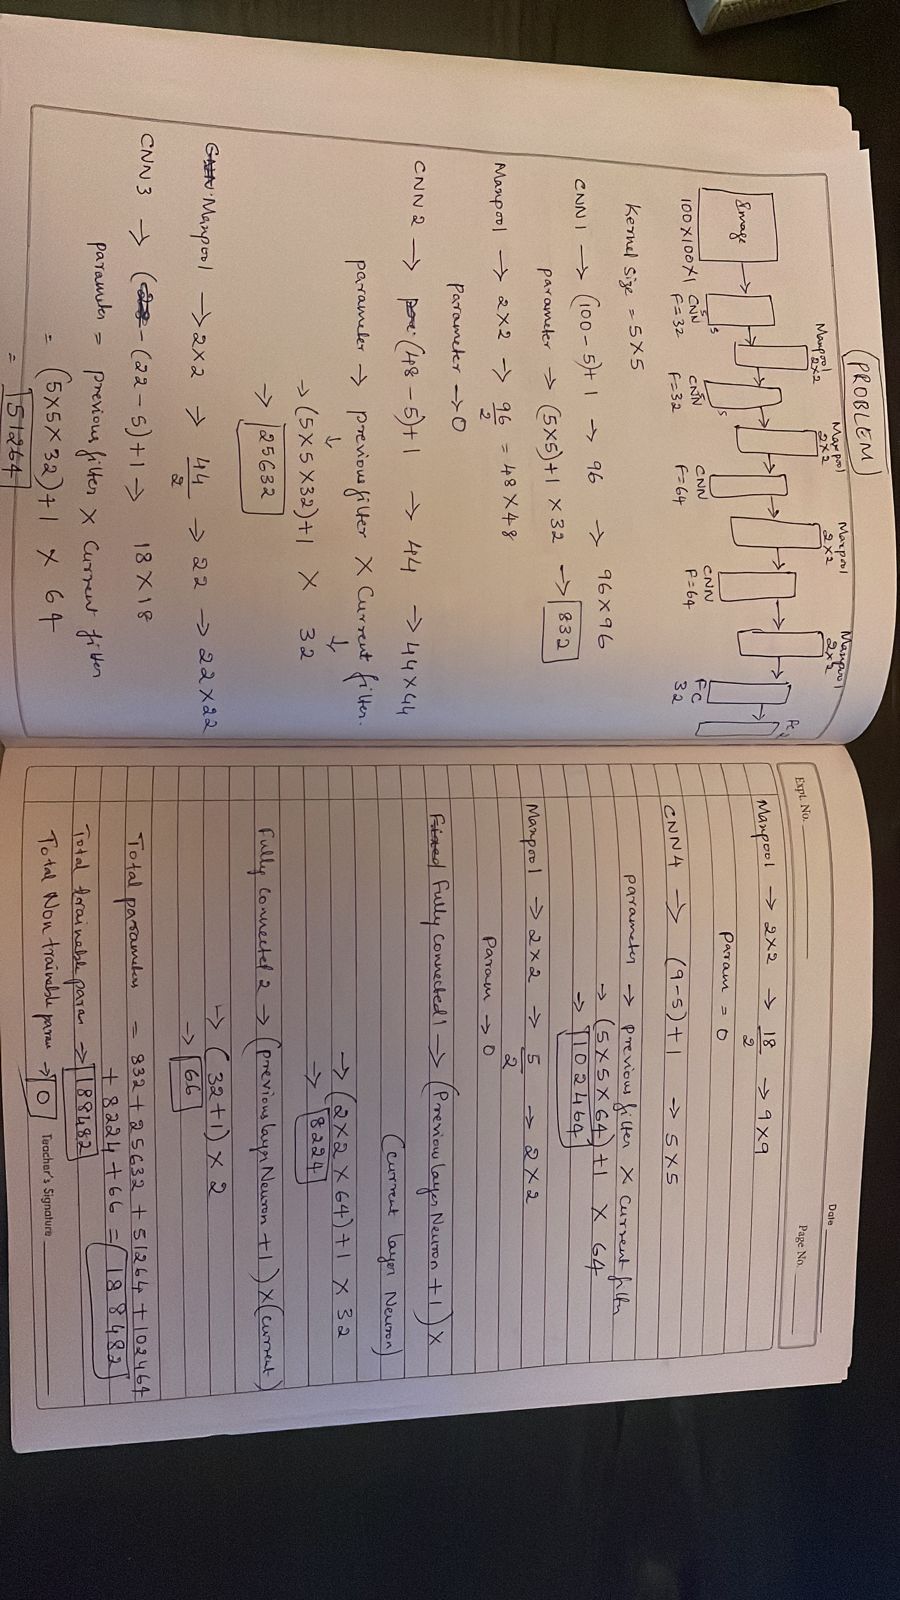 PROBLEM
Maxpool 2x2
Maxpool 2x2
Maxpool 2x2
Maxpool 2x2
Image
FC 2
5
5
5
5
100X100X1
CNN F=32
CNN F=32
CNN F=64
CNN F=64
FC 32
Kernel Size = 5X5
CNN1 → (100-5)+1 → 96 → 96X96
parameter → (5X5)+1 X 32 → 832
Maxpool → 2X2 → 96/2 = 48X48
parameter → 0
CNN2 → (48-5)+1 → 44 → 44X44
parameter → previous filter X Current filter.
↓ ↓
→ (5X5X32)+1 X 32
→ 25632
Maxpool → 2X2 → 44/2 → 22 → 22X22
CNN3 → ( - (22-5)+1 → 18X18
parameter = previous filter X Current filter
= (5X5X32)+1 X 64
= 51264
Date
Expt. No.
Page No.
Maxpool → 2X2 → 18/2 → 9X9
Param = 0
CNN4 → (9-5)+1 → 5X5
parameter → previous filter X Current filtr
→ (5X5X64)+1 X 64
→ 102464
Maxpool → 2X2 → 5/2 → 2X2
Param → 0
Fully Connected1 → (Previous layer Neuron +1) X
(current layer Neuron)
→ (2X2X64)+1 X 32
→ 8224
Fully Connected 2 → (previous layer Neuron +1) X (current)
→ (32+1) X 2
→ 66
Total parameters = 832+25632+51264+102464
+ 8224+66 = 188482
Total trainable param → 188482
Total Non trainable param → 0
Teacher's Signature